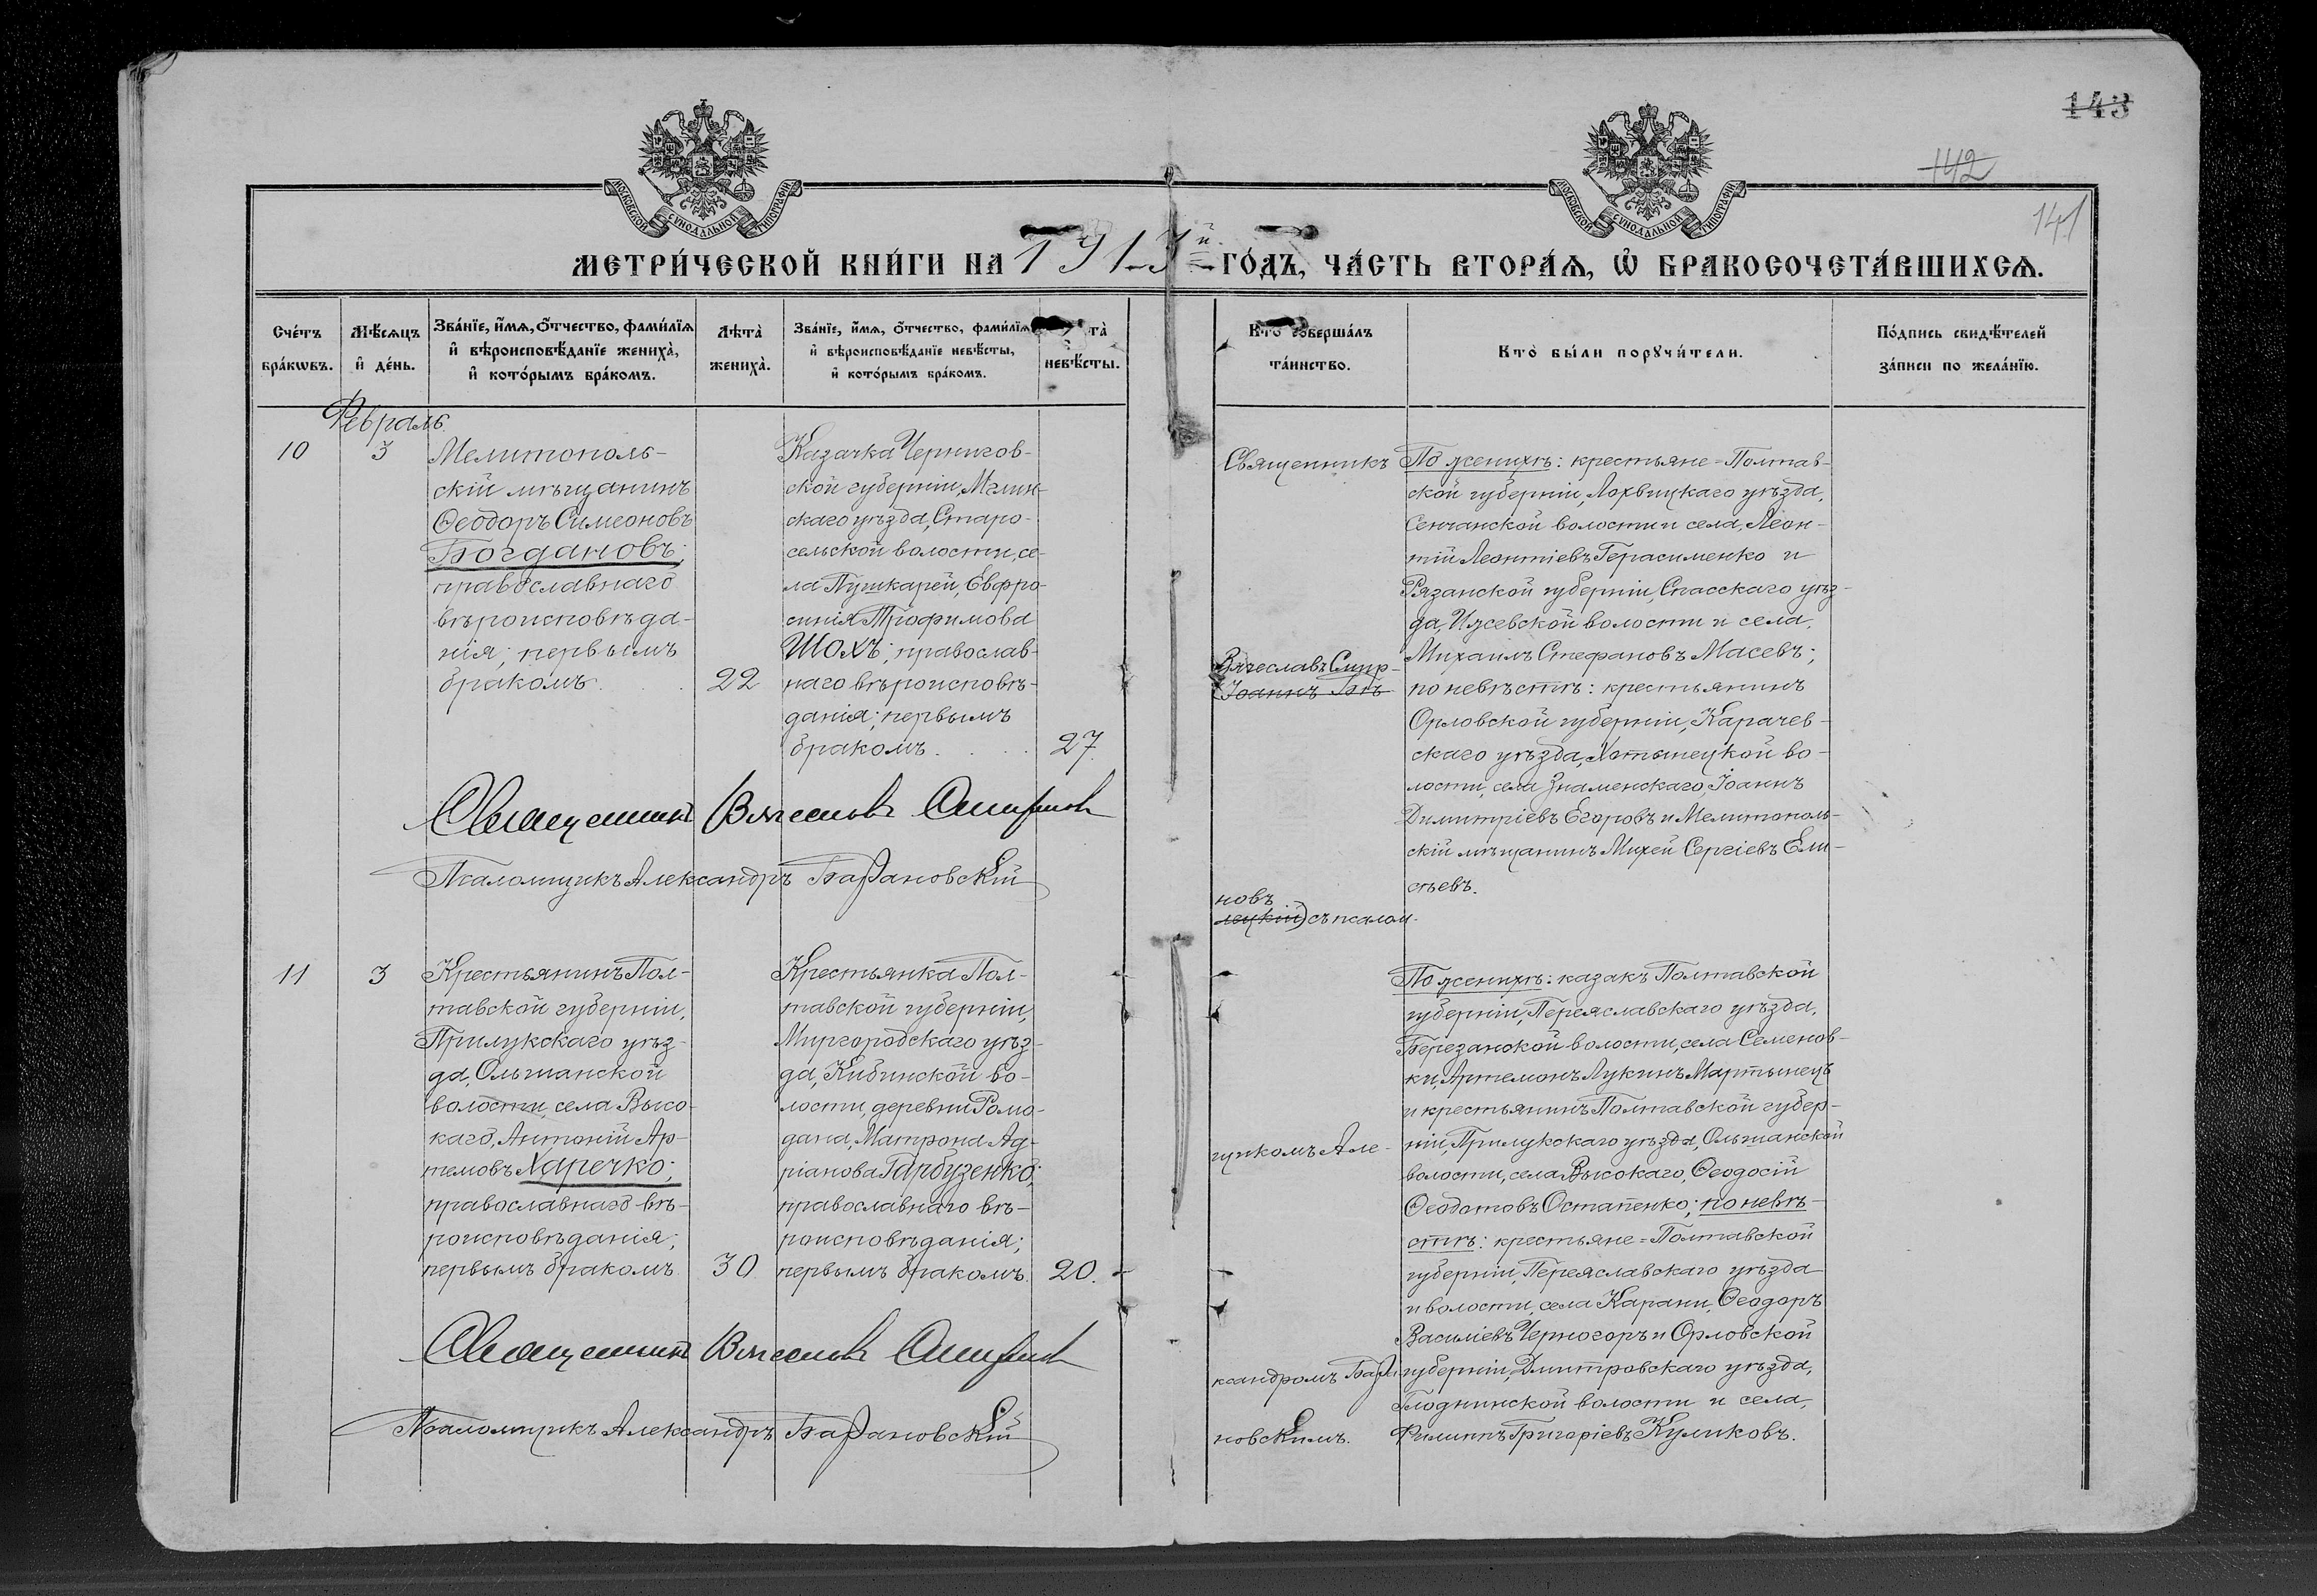 143
142
141
МОСКОВСКОЙ СѴНОДАЛЬНОЙ ТИПОГРАФІИ
МОСКОВСКОЙ СѴНОДАЛЬНОЙ ТИПОГРАФІИ
МЕТРИ́ЧЕСКОЙ КНИ́ГИ НА 1913й ГО́ДЪ, ЧА́СТЬ ВТОРА́Ѧ, Ѽ БРАКОСОЧЕТА́ВШИХСѦ.
Сче́тъ
бра́кѡвъ.
Мѣ́сѧцъ
и҆ де́нь.
Зва́нїе, и҆́мѧ, ѻ҆́тчество, фами́лїѧ
и҆ вѣроисповѣ́данїе жениха̀,
и҆ кото́рымъ бра́комъ.
Лѣта̀
жениха̀.
Зва́нїе, и҆́мѧ, ѻ҆́тчество, фами́лїѧ
и҆ вѣроисповѣ́данїе невѣ́сты,
и҆ кото́рымъ бра́комъ.
та̀
невѣ́сты.
Кто̀ соверша́лъ
та́инство.
Кто̀ бы́ли порꙋчи́тели.
По́дпись свидѣ́телей
за́писи по жела́нїю.
Февраль
10
3
Мелитополь-
скій мѣщанинъ
Ѳеодоръ Симеоновъ
Богдановъ;
православнаго
вѣроисповѣда-
нія; первымъ
бракомъ.
22
Казачка Чернигов-
ской губерніи, Мглин-
скаго уѣзда, Старо-
сельской волости, се-
ла Пушкарей, Евфро-
синія Трофимова
Шохъ; православ-
наго вѣроисповѣ-
данія; первымъ
бракомъ.
27.
Священникъ
Вячеславъ Смир-
Іоаннъ Бѣ
новъ
лецкій) съ псалом-
По женихѣ: крестьяне-Полтав-
ской губерніи, Лохвицкаго уѣзда,
Сенчанской волости и села, Леон-
тій Леонтіевъ Герасименко и
Рязанской губерніи, Спасскаго уѣз-
да, Ижевской волости и села,
Михаилъ Стефановъ Масевъ;
по невѣстѣ: крестьянинъ
Орловской губерніи, Карачев-
скаго уѣзда, Хотынецкой во-
лости, села Знаменскаго, Іоаннъ
Димитріевъ Егоровъ и Мелитополь-
скій мѣщанинъ Михей Сергіевъ Ели-
сѣевъ.
Священникъ Вячеславъ Смирновъ
Псаломщикъ Александръ Барановскій
11
3
Крестьянинъ Пол-
тавской губерніи,
Прилукскаго уѣз-
да, Ольшанской
волости, села Высо-
каго, Антоній Ар-
темовъ Харечко;
православнаго вѣ-
роисповѣданія;
первымъ бракомъ
30
Крестьянка Пол-
тавской губерніи,
Миргородскаго уѣз-
да, Кибинской во-
лости, деревни Ромо-
дана, Матрона Ад-
ріанова Гарбузенко;
православнаго вѣ-
роисповѣданія;
первымъ бракомъ.
20.
щикомъ Але-
ксандромъ Бара
новскимъ.
По женихѣ: казакъ Полтавской
губерніи, Переяславскаго уѣзда,
Березанской волости, села Семенов-
ки, Артемонъ Лукинъ Мартынецъ
и крестьянинъ Полтавской губер-
ніи, Прилукскаго уѣзда, Ольшанской
волости, села Высокаго, Ѳеодосій
Ѳеодотовъ Остапенко; по невѣ-
стѣ: крестьяне-Полтавской
губерніи, Переяславскаго уѣзда
и волости, села Карани, Ѳеодоръ
Василіевъ Черногоръ и Орловской
губерніи, Дмитровскаго уѣзда,
Глоднинской волости и села,
Филиппъ Григоріевъ Куликовъ.
Священникъ Вячеславъ Смирновъ
Псаломщикъ Александръ Барановскій